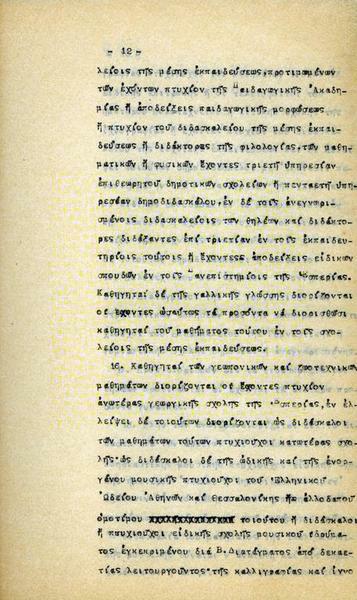 - 12 -
λείοις τῆς μέσης ἐκπαιδεύσεως, προτιμωμένων
τῶν ἐχόντων πτυχίον τῆς Παιδαγωγικῆς Ἀκαδη-
μίας ἤ ἀποδείξεις παιδαγωγικῆς μορφώσεως
ἤ πτυχίον τοῦ διδασκαλείου τῆς μέσης ἐκπαι-
δεύσεως ἤ διδάκτορας τῆς φιλολογίας, τῶν μαθη-
ματικῶν ἤ φυσικῶν ἔχοντες τριετῆ ὑπηρεσίαν
ἐπιθεωρητοῦ δημοτικῶν σχολείων ἤ πενταετῆ ὑπη-
ρεσίαν δημοδιδασκάλου, ἐν δέ τοῖς ἀνεγνωρι-
σμένοις διδασκαλείοις τῶν θηλέων καί διδάκτο-
ρες διδάξαντες ἐπί τριετίαν ἐν τοῖς ἐκπαιδευ-
τηρίοις τούτοις ἤ ἔχοντες ἀποδείξεις εἰδικῶν
σπουδῶν ἐν τοῖς Πανεπιστημίοις τῆς Ἑσπερίας.
Καθηγηταί δέ τῆς γαλλικῆς γλώσσης διορίζονται
οἱ ἔχοντες ὡσαύτως τά προσόντα νά διορισθῶσι
καθηγηταί τοῦ μαθήματος τούτου ἐν τοῖς σχο-
λείοις τῆς μέσης ἐκπαιδεύσεως.
16. Καθηγηταί τῶν γεωπονικῶν καί ζωοτεχνικῶν
μαθημάτων διορίζονται οἱ ἔχοντες πτυχίον
ἀνωτέρας γεωργικῆς σχολῆς τῆς Ἑσπερίας, ἐν ἐλ-
λείψει δέ τοιούτων διορίζονται ὡς διδάσκαλοι
τῶν μαθημάτων τούτων πτυχιοῦχοι κατωτέρας σχο-
λῆς· ὡς διδάσκαλοι δέ τῆς ὠδικῆς καί τῆς ἐνορ-
γάνου μουσικῆς πτυχιοῦχοι τοῦ Ἑλληνικοῦ
Ὠδείου Ἀθηνῶν καί Θεσσαλονίκης ἤ ἀλλοδαποῦ
ὁμοτίμου τοιούτου ἤ διδάσκαλοι
ἤ πτυχιοῦχοι εἰδικῆς σχολῆς μουσικοῦ ἱδρύμα-
τος ἐγκεκριμένου διά Β. Διατάγματος ἀπό δεκαε-
τίας λειτουργοῦντος· τῆς καλλιγραφίας καί ἰχνο